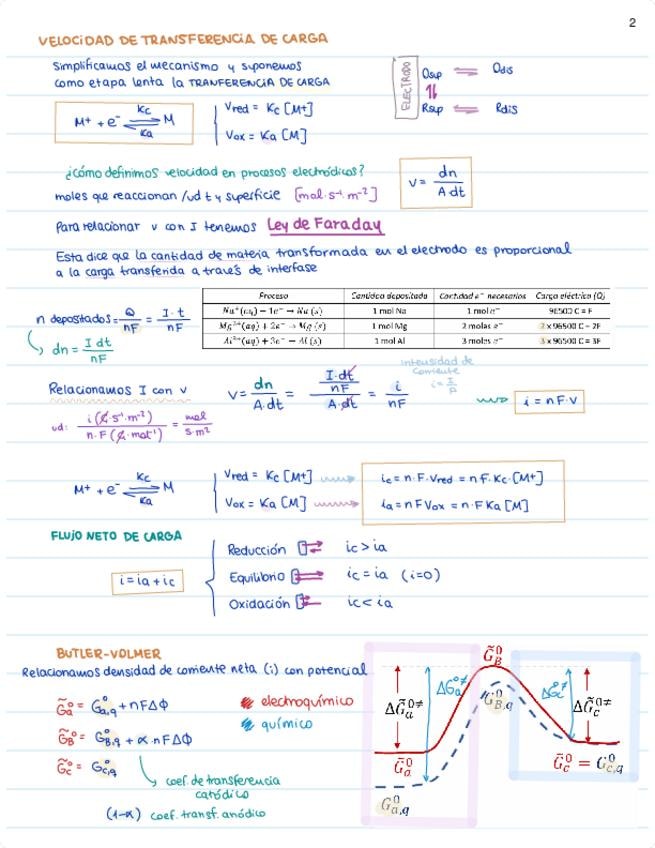 2
VELOCIDAD DE TRANSFERENCIA DE CARGA
Simplificamos el mecanismo y suponemos
como etapa lenta la TRANFERENCIA DE CARGA
ELECTRODO
Osup ⇌ Odis
⇅
Rsup ⇌ Rdis
M+ + e- ⇌ M
Kc
Ka
Vred = Kc [M+]
Vox = Ka [M]
¿cómo definimos velocidad en procesos electródicos?
moles que reaccionan /ud t y superficie [mol·s-1·m-2]
v = dn / A·dt
Para relacionar v con I tenemos Ley de Faraday
Esta dice que la cantidad de materia transformada en el electrodo es proporcional
a la carga transferida a través de interfase
n depositados = Q/nF = I·t/nF
dn = I dt / nF
Proceso Cantidad depositada Cantidad e- necesarios Carga eléctrica (Q)
Na+(aq) + 1e- → Na (s) 1 mol Na 1 mol e- 96500 C = F
Mg2+(aq) + 2e- → Mg (s) 1 mol Mg 2 moles e- 2 x 96500 C = 2F
Al3+(aq) + 3e- → Al (s) 1 mol Al 3 moles e- 3 x 96500 C = 3F
Relacionamos I con v
v = dn / A·dt = (I·dt / nF) / A·dt = i / nF
intensidad de
corriente
i = I/A
i = nF·v
ud: i (C·s-1·m-2) / n·F (C·mol-1) = mol / s·m2
M+ + e- ⇌ M
Kc
Ka
Vred = Kc [M+]
Vox = Ka [M]
ic = n·F·Vred = nF·Kc·[M+]
ia = nFVox = n·FKa [M]
FLUJO NETO DE CARGA
i = ia + ic
Reducción ic > ia
Equilibrio ic = ia (i=0)
Oxidación ic < ia
BUTLER-VOLMER
Relacionamos densidad de corriente neta (i) con potencial
G̃a° = G°a,q + nFΔΦ
G̃B° = G°B,q + α·nFΔΦ
G̃c° = G°c,q
electroquímico
químico
coef. de transferencia
catódico
(1-α) coef. transf. anódico
G̃B0
ΔGa0≠
ΔG̃a0≠
GB,q0
ΔGc≠
ΔG̃c0≠
G̃a0
G̃c0 = Gc,q0
Ga,q0